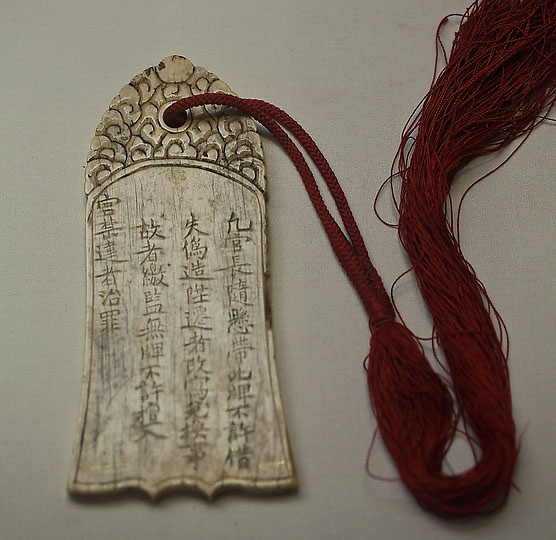 凡官長隨懸帶此牌不許借
失偽造陞遷者改寫兌換事
故者繳監無牌不許擅入
宮禁違者治罪